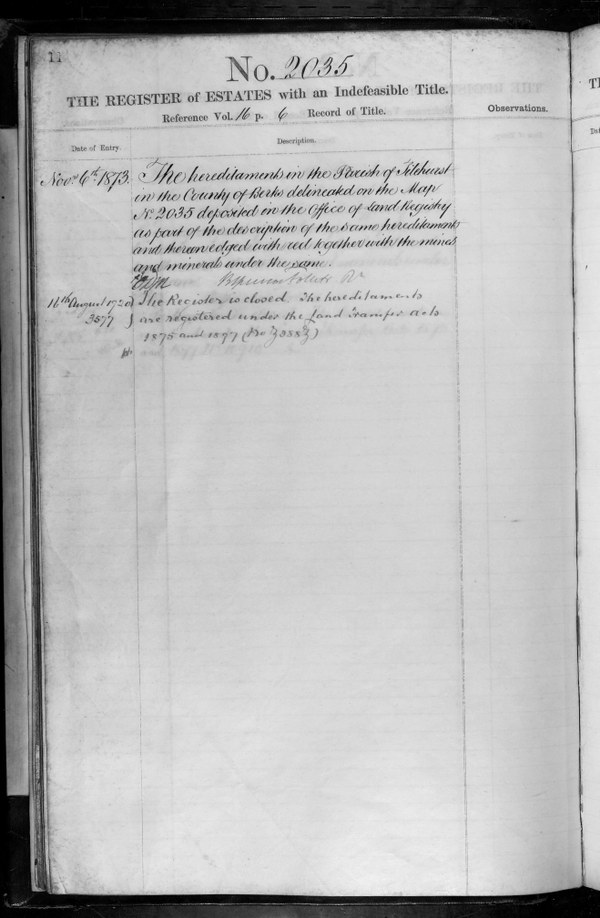 11
No. 2035
THE REGISTER of ESTATES with an Indefeasible Title.
Reference Vol. 16 p. 6 Record of Title.
Observations.
Date of Entry.
Description.
Novr. 6th 1873.
The hereditaments in the Parish of Tilehurst
in the County of Berks delineated on the Map
No. 2035 deposited in the Office of Land Registry
as part of the description of the same hereditaments
and thereon edged with red together with the mines
and minerals under the same.
16th August 1920
3577
The Register is closed The hereditaments
are registered under the Land Transfer Acts
1875 and 1897